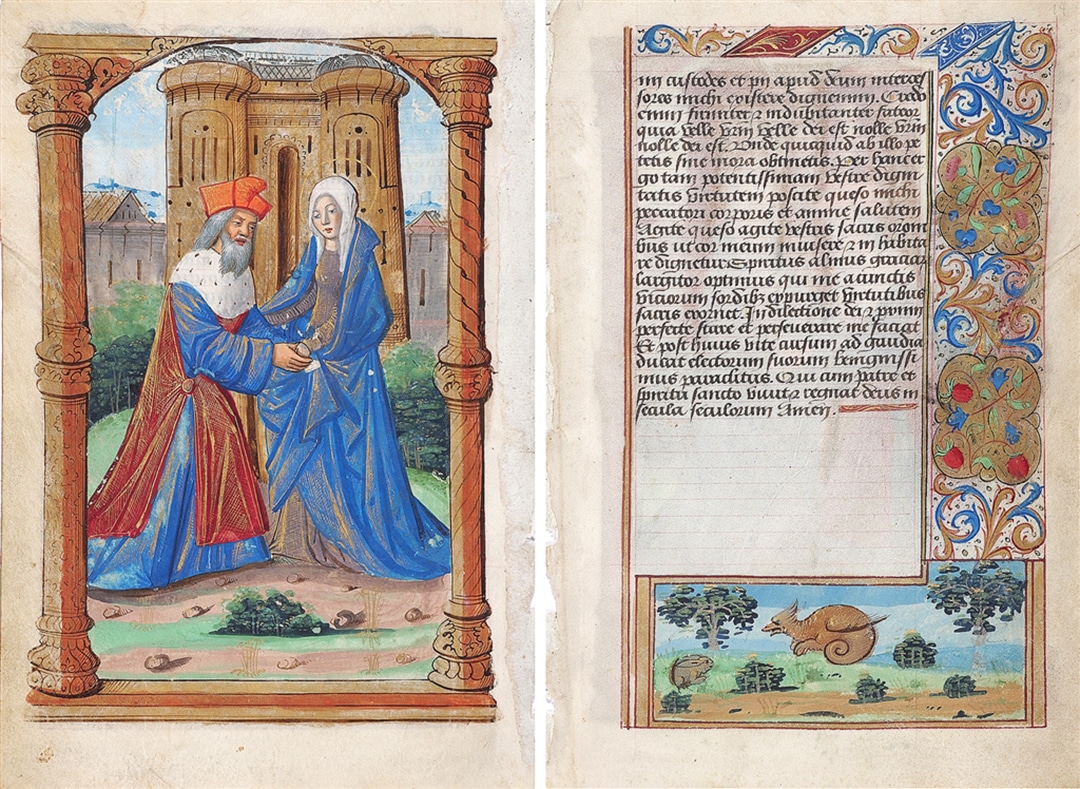 mi custodes et pii apud deum interces
sores michi existere dignemini. Credo
enim firmiter ⁊ indubitanter fateor
quia velle vrm velle dei est nolle vrm
nolle dei est. Unde quicquid ab illo pe
tetis sine mora obtinetis. Per hanc er
go tam potentissimam vestre digni
tatis virtutem poscite queso michi
peccatori corporis et anime salutem
Agite queso agite vestris sacris oroni
bus ut cor meum invisere ⁊ inhabita
re dignetur Spiritus almus graciar
largitor optimus qui me a cunctis
viciorum sordibz expurget virtutibus
sacris exornet. In dilectione dei ⁊ primi
perfecte stare et perseverare me faciat
Et post huius vite cursum ad gaudia
ducat electorum suorum benignissi
mus paraclitus. Qui cum patre et
spiritu sancto vivit ⁊ regnat deus in
secula seculorum Amen.